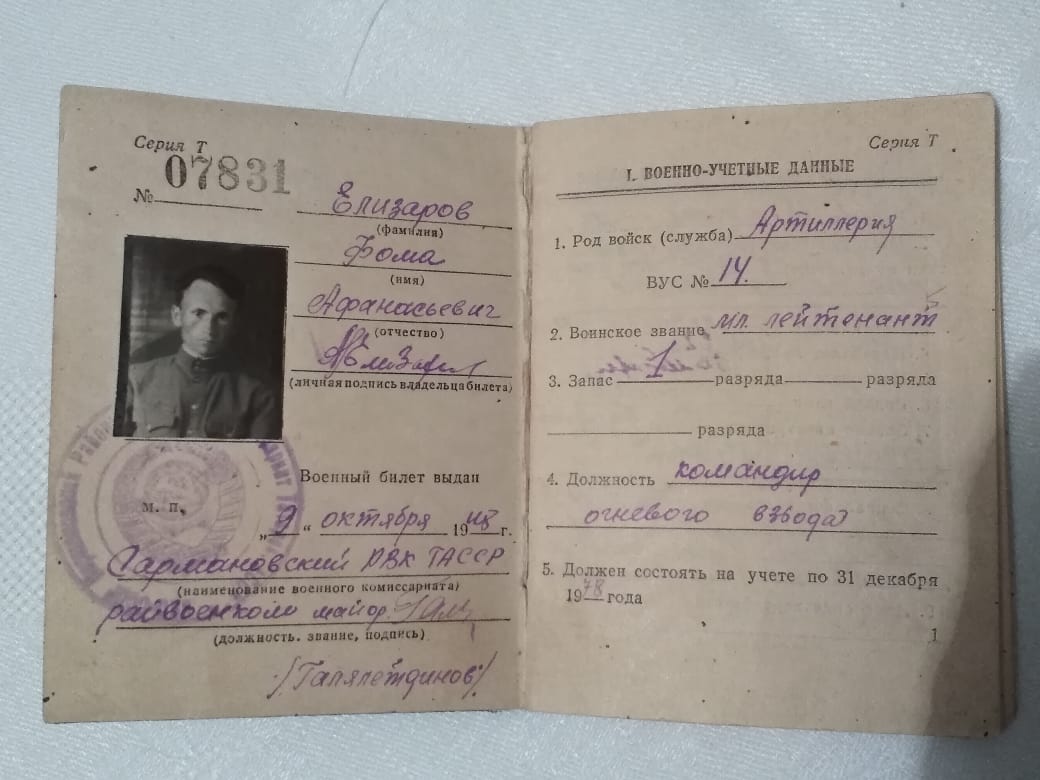 Серия Т
№ 07831
Елизаров
(фамилия)
Фома
(имя)
Афанасьевич
(отчество)
(личная подпись владельца билета)
Военный билет выдан
М. П.
„9“ октября 1948 г.
Сармановский РВК ТАССР
(наименование военного комиссариата)
райвоенком майор
(должность, звание, подпись)
/Галялетдинов/
Серия Т
I. ВОЕННО-УЧЕТНЫЕ ДАННЫЕ
1. Род войск (служба) Артиллерия
ВУС № 14.
2. Воинское звание мл. лейтенант
3. Запас 1 разряда разряда
разряда
4. Должность командир
огневого взвода
5. Должен состоять на учете по 31 декабря
1978 года
1